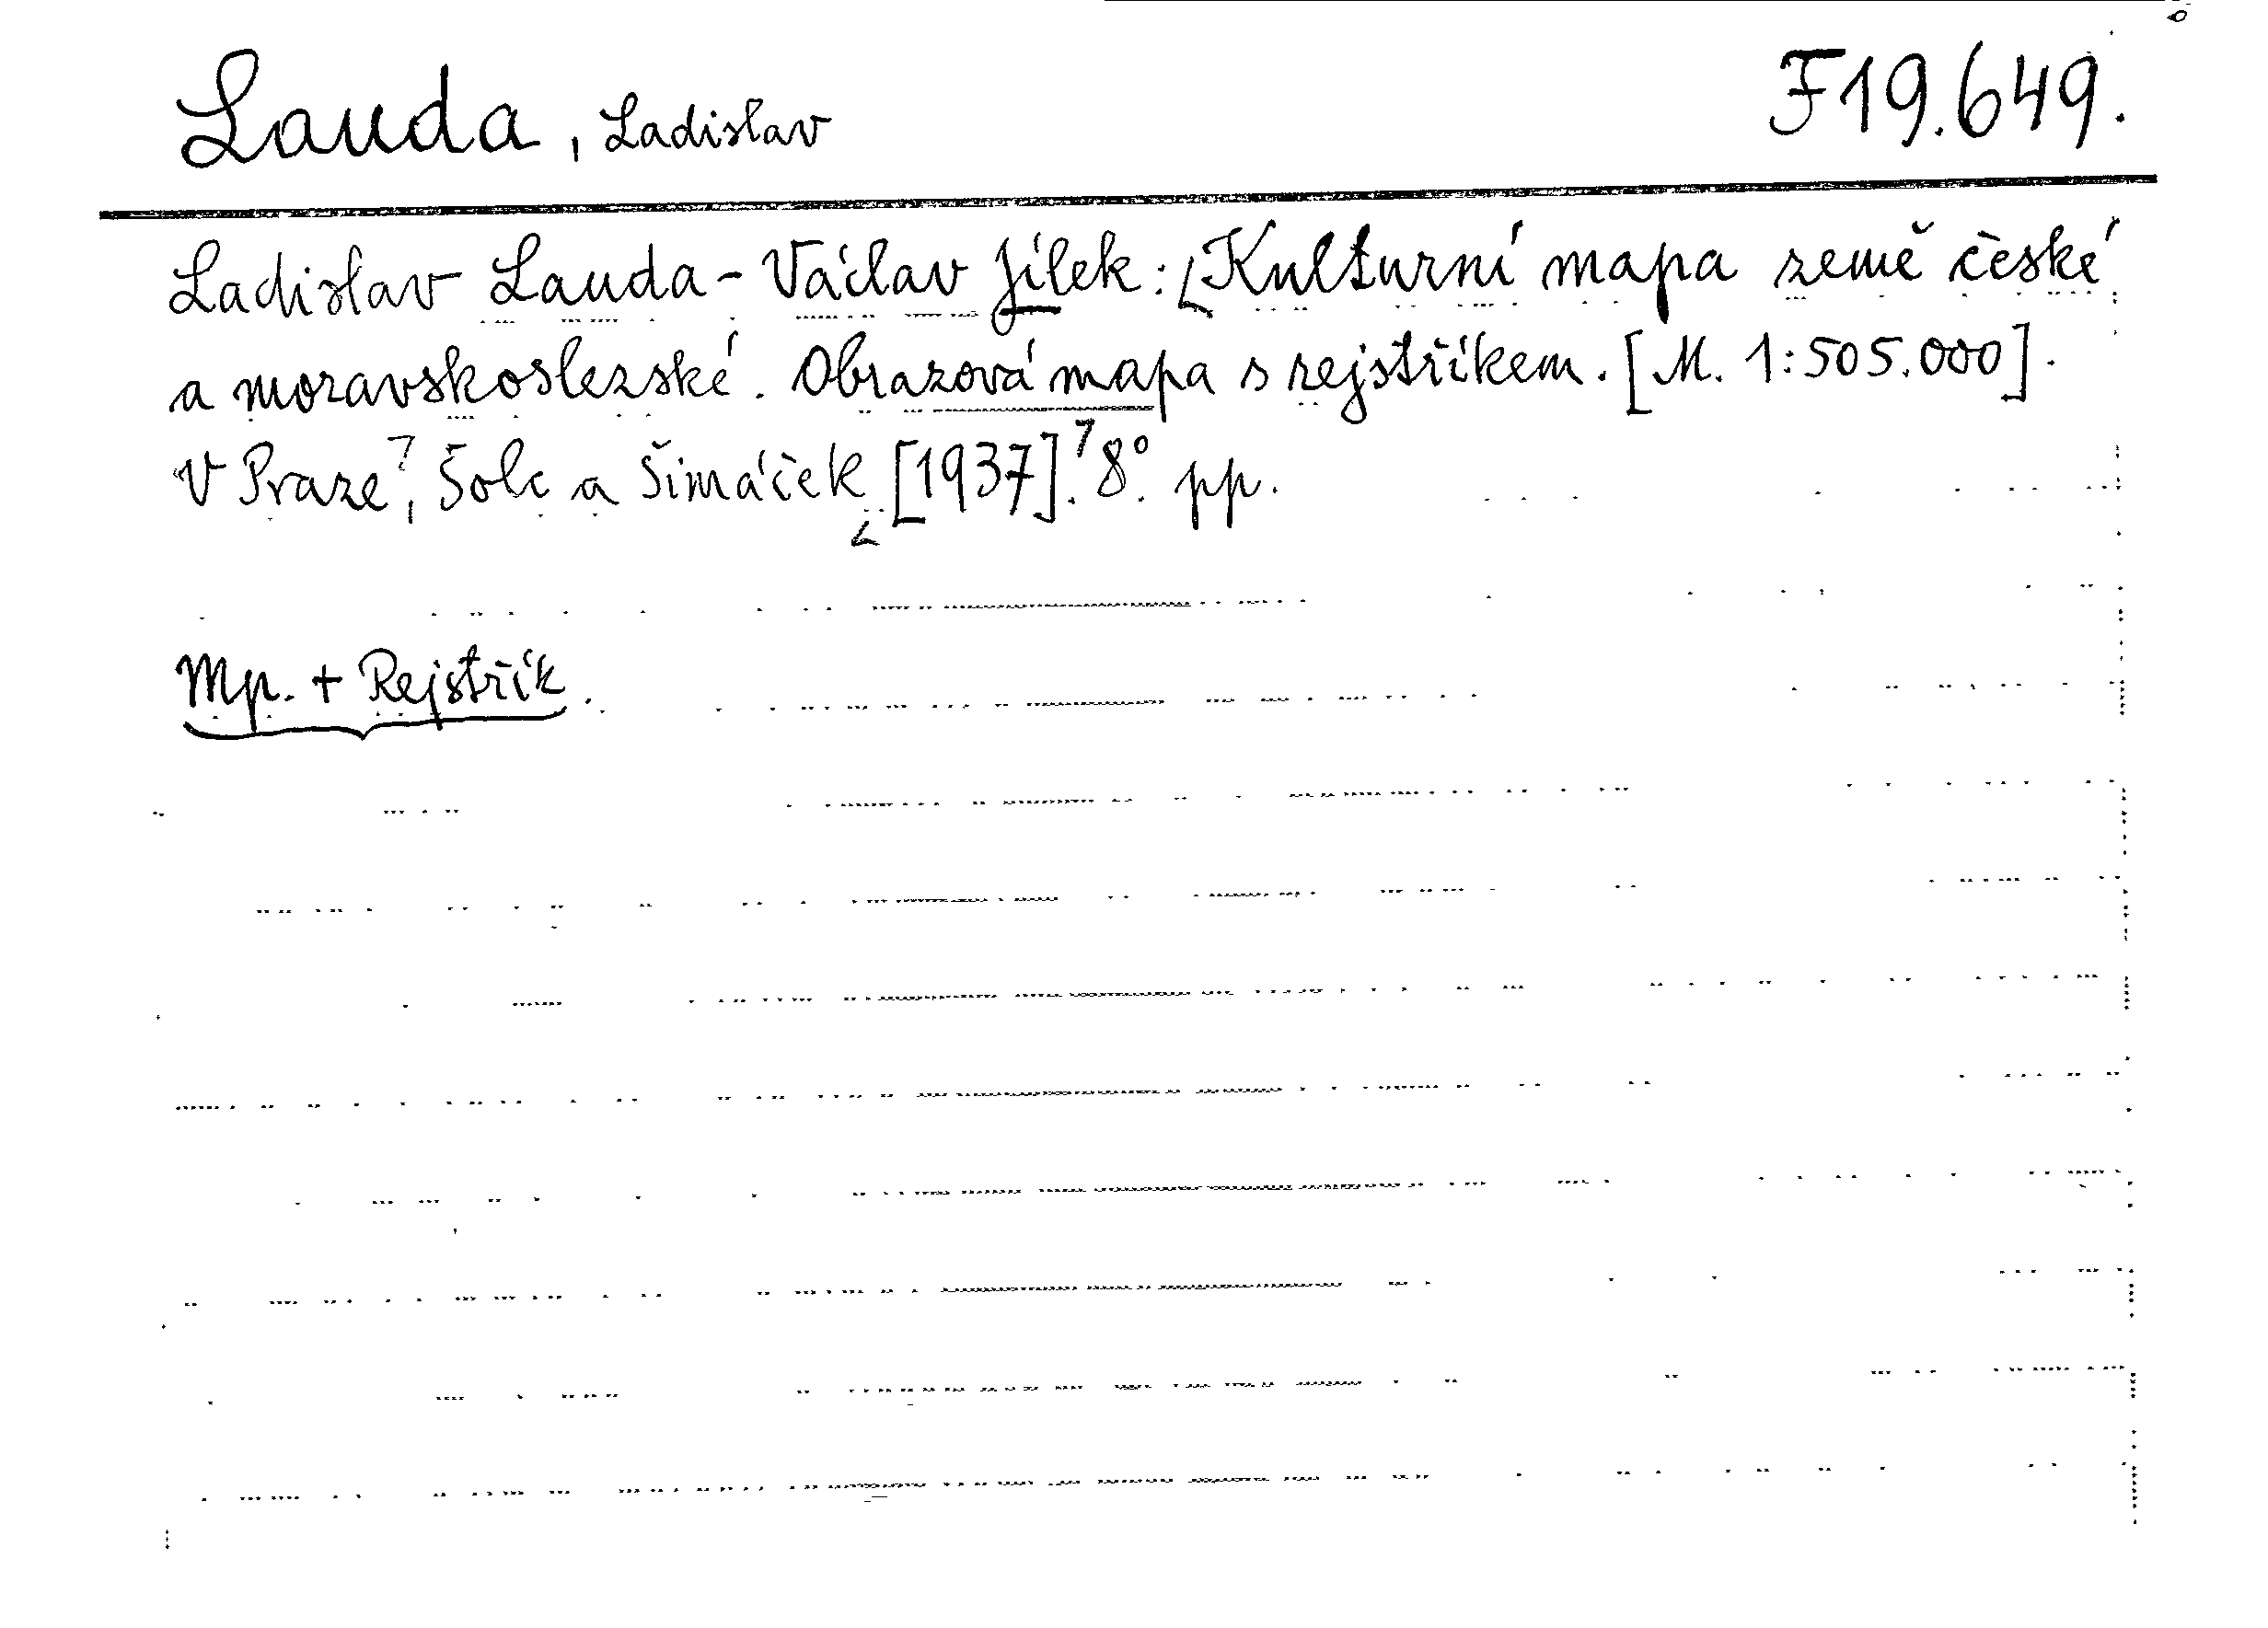 Lauda, Ladislav F19.649.
Ladislav Lauda - Václav Jílek: Kulturní mapa země české
a moravskoslezské. Obrazová mapa s rejstříkem. [M. 1:505.000].
V Praze, Šolc a Šimáček [1937]. 8°. pp.
Mp. + Rejstřík.